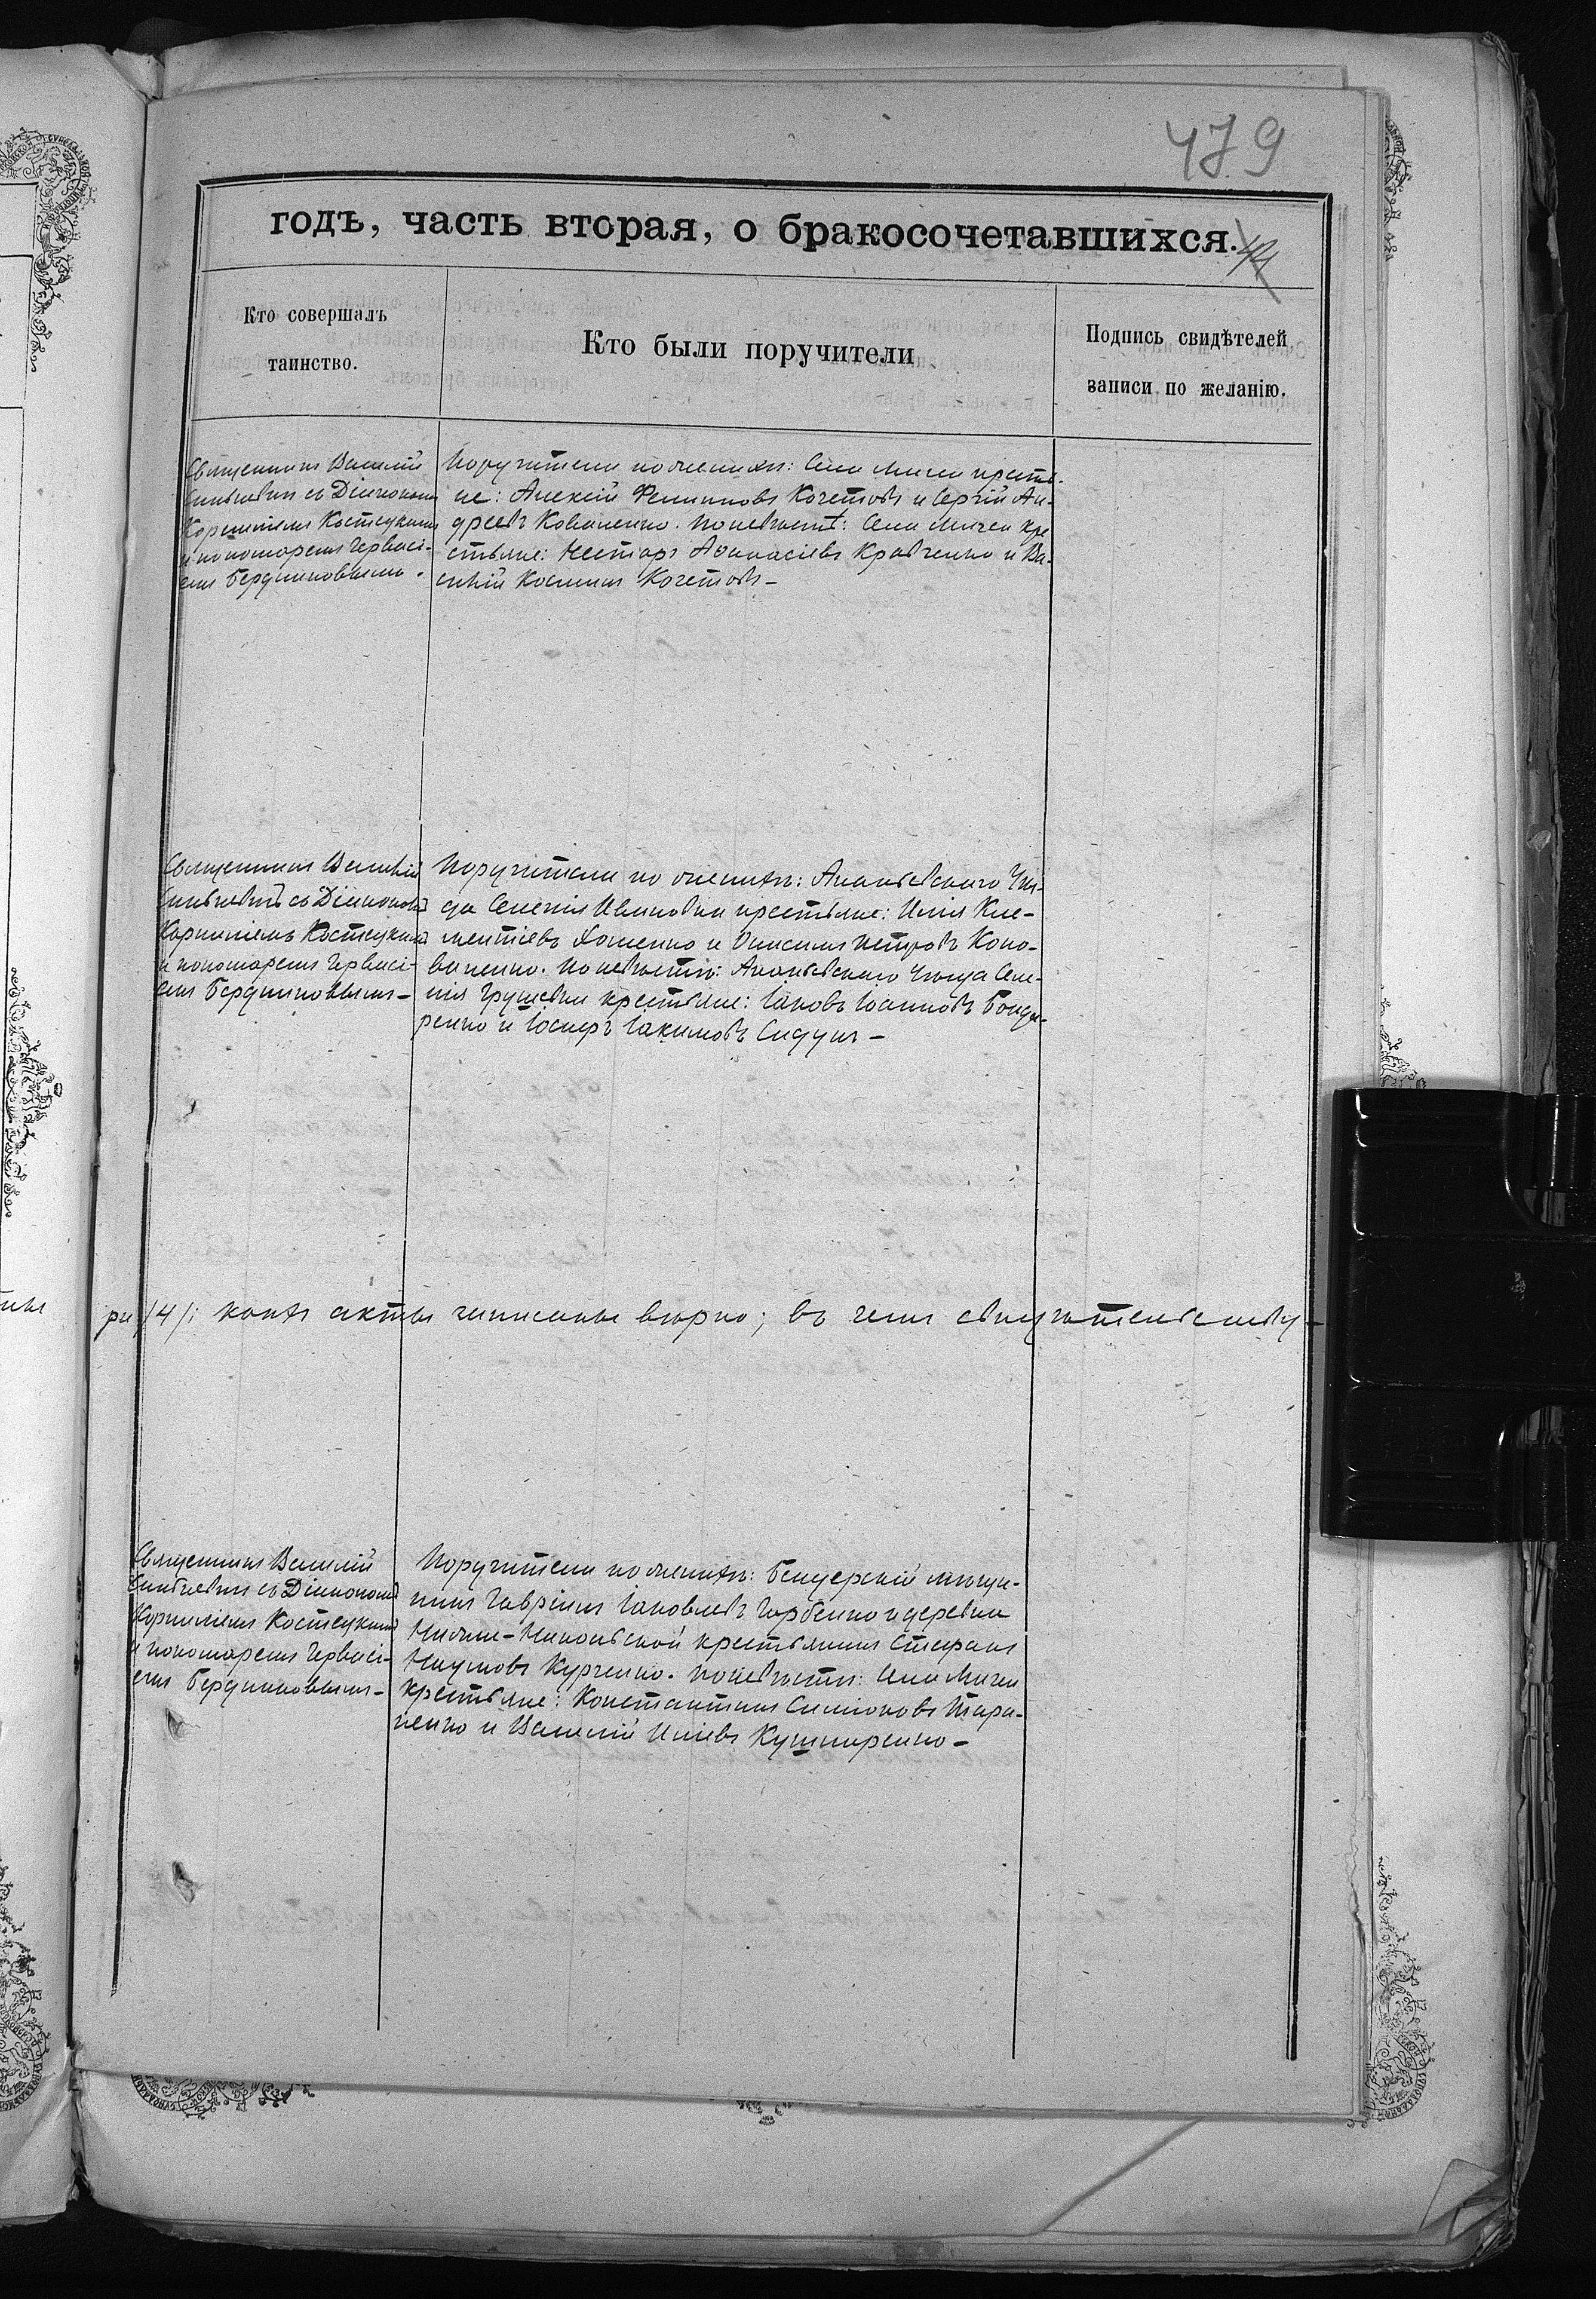 479
годъ, часть вторая, о бракосочетавшихся.
44
Кто совершалъ
таинство.
Кто были поручители
Подпись свидѣтелей
записи по желанію.
Священникъ Василій
съ Діакономъ
Корниліемъ Костецкимъ
и пономаремъ Герваси-
емъ Бердниковымъ.
Поручители по женихѣ: Села Мигеи кресть-
не: Алексій Филиповъ Кочетовъ и Сергій Ан-
дреевъ Коваленко. По невѣстѣ: Села Мигеи кре
стьяне: Несторъ Аѳанасіевъ Кравченко и Ва-
силій Косминъ Кочетовъ-
Священникъ Василій
съ Діакономъ
Корниліемъ Костецкимъ
и пономаремъ Герваси-
емъ Бердниковымъ-
Поручители по женихѣ: Ананьевскаго Уѣз-
да Селенія Ивановки крестьяне: Илія Кле-
ментіевъ Хоменко и Онисимъ Петровъ Коно-
валенко. По невѣстѣ: Ананьевскаго Уѣзда Селе-
нія Грушевки крестьяне: Іаковъ Іоанновъ Бонда-
ренко и Іосифъ Іакимовъ
ри /4/: коихъ акты записаны вѣрно; въ чемъ свидѣтельству-
Священникъ Василій
съ Діакономъ
Корниліемъ Костецкимъ
и пономаремъ Герваси-
емъ Бердниковымъ-
Поручители по женихѣ: Бендерскій мѣща-
нинъ Гавріилъ Іаковлевъ Гарбенко и деревни
Никольской крестьянинъ Стефанъ
Наумовъ Курченко. По невѣстѣ: Села Мигеи
крестьяне: Константинъ Симіоновъ Тара-
ненко и Василій Иліевъ Кушнаренко-